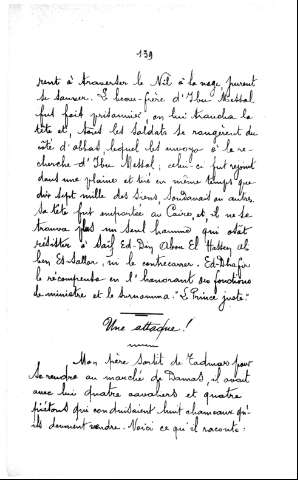 139
rent à traverser le Nil à la nage, purent
se sauver. Le beau-frère d'Ibn Messal
fut fait prisonnier, on lui trancha la
tête et, tous les soldats se rangèrent du
côté d'abbas lequel les envoya à la re-
cherche d'Ibn Messal; celui-ci fut rejoint
dans une plaine et tué en même temps que
dix sept mille des siens Soudanais ou autres.
Sa tête fut emportée au Caire et, il ne se
trouva plus un seul homme qui osât
résister à Saïf Ed-Din Abou El Hassen ali
ben Es-Sallar, ni le contrecarrer. Ed-Dhafir
le récompensa en l'honorant des fonctions
de ministre et le surnomma "Le Prince juste"
Une attaque!
Mon père sortit de Tadmor pour
se rendre au marché de Damas, il avait
avec lui quatre cavaliers et quatre
piétons qui conduisaient huit chameaux qu'
ils devaient vendre. Voici ce qu'il raconte: